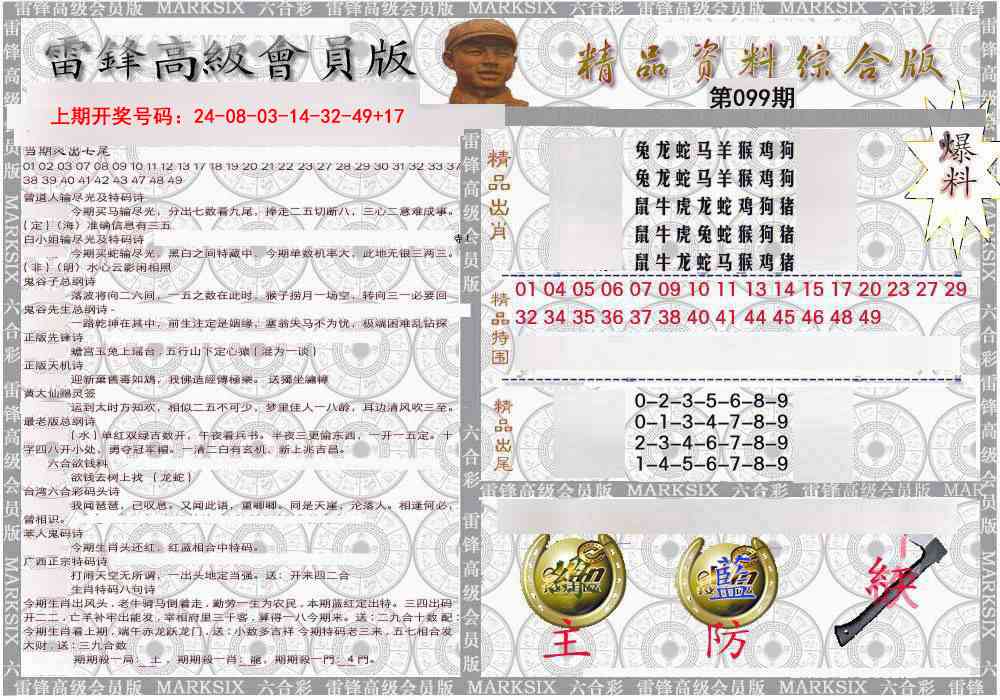 雷锋高级会员版 MARKSIX 六合彩 雷锋高级会员版 MARKSIX 六合彩 雷锋高级会员版 MARKSIX 六合彩
雷鋒高級會員版
精品资料综合版
第099期
上期开奖号码：24-08-03-14-32-49+17
当期奖出七尾
01 02 03 07 08 09 10 11 12 13 17 18 19 20 21 22 23 27 28 29 30 31 32 33 37
38 39 40 41 42 43 47 48 49
曾道人输尽光及特码诗
今期买马输尽光，分出七数看九尾，捧走二五切断八，三心二意难成事。
{定}（海）准确信息有三五
白小姐输尽光及特码诗
今期买蛇输尽光，黑白之间特藏中，今期单数机率大，此地无银三两三。
{非}（明）水心云影闲相照
鬼谷子总纲诗
落波将向二六间，一五之数在此时，猴子捞月一场空，转向三一必要回
鬼谷先生总纲诗
一路乾坤在其中，前生注定是姻缘，塞翁失马不为忧，极端困难乱钻探
正版先锋诗
蟾宫玉兔上瑶台，五行山下定心猿{混为一谈}
正版天机诗
迎新棄舊毒如鴆，我佛造經傳極樂。送獨坐嘯樟
黄大仙赐灵签
运到太时方知欢，相似二五不可少，梦里佳人一八龄，耳边清风吹三至。
最老版总纲诗
{水}单红双绿吉数开，午夜看兵书。半夜三更偷东西，一开一五定。十
字四八开小处，勇夺冠军帽。一清二白有玄机，新上兆吉昌。
六合欲钱料
欲钱去树上找 {龙蛇}
台湾六合彩码头诗
我闻琵琶，已叹息。又闻此语，重唧唧。同是天崖，沦落人。相逢何必，
曾相识。
本人鬼码诗
今期生肖头还红，红蓝相合中特码。
广西正宗特码诗
打雨天空无所谓，一出头地定当强。送：开来四二合
生肖特码八句诗
今期生肖出风头，老牛骑马倒着走，勤劳一生为农民，本期蓝红定出特。三四出码
开二二，亡羊补牢出能发，宰相府里三千客，算得一八今期来。送：二九合十数 配：
今期生肖看上期，端午赤龙跃龙门，送：小数多吉祥 今期特码老三来，五七相合发
大财，送：三九合数
期期殺一局：土，期期殺一肖：龍，期期殺一門：4門。
精品出肖
兔龙蛇马羊猴鸡狗
兔龙蛇马羊猴鸡狗
鼠牛虎龙蛇鸡狗猪
鼠牛虎兔蛇猴狗猪
鼠牛龙蛇马猴鸡猪
爆料
精品特围
01 04 05 06 07 09 10 11 13 14 15 17 20 23 27 29
32 34 35 36 37 38 40 41 44 45 46 48 49
精品出尾
0-2-3-5-6-8-9
0-1-3-4-7-8-9
2-3-4-6-7-8-9
1-4-5-6-7-8-9
雷锋高级会员版 MARKSIX 六合彩 雷锋高级会员版 MARKSIX
主
藍
防
綠
雷锋高级会员版 MARKSIX 六合彩 雷锋高级会员版 MARKSIX 六合彩 雷锋高级会员版 MARKSIX 六合彩 雷锋